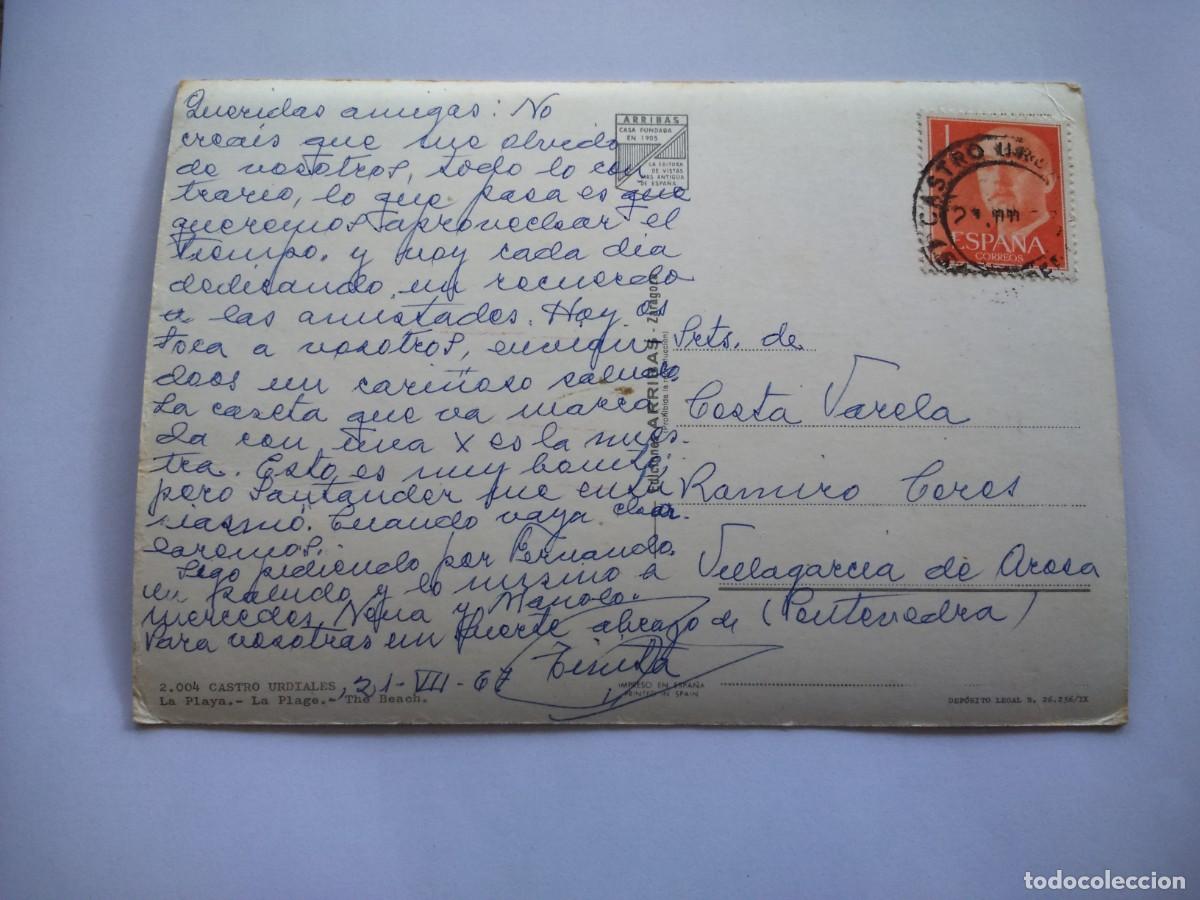 Queridas amigas: No
creais que me olvido
de vosotros, todo lo con
trario, lo que pasa es que
queremos aprovechar el
tiempo, y voy cada dia
dedicando un recuerdo
a las amistades. Hoy os
toca a vosotros, envian
doos un cariñoso saludo
La caseta que va marca
da con una x es la nues-
tra. Esto es muy bonito,
pero Santander me entu
siasmó. Cuando vaya char
laremos.
Sigo pidiendo por Fernando.
un saludo y lo mismo a
Mercedes, Nena y Manolo.
Para vosotras un fuerte abrazo de
Tinita
2.004 CASTRO URDIALES, 21-VII-67
La Playa.- La Plage.- The Beach.
ARRIBAS
CASA FUNDADA
EN 1905
LA EDITORA
DE VISTAS
MAS ANTIGUA
DE ESPAÑA
Ediciones ARRIBAS - Zaragoza
(Prohibida la reproducción)
1
ESPAÑA
CORREOS
CASTRO
Srts. de
Costa Varela
Ramiro Cores
Villagarcia de Arosa
(Pontevedra)
IMPRESO EN ESPAÑA
PRINTED IN SPAIN
DEPÓSITO LEGAL B. 26.236/IX
todocoleccion